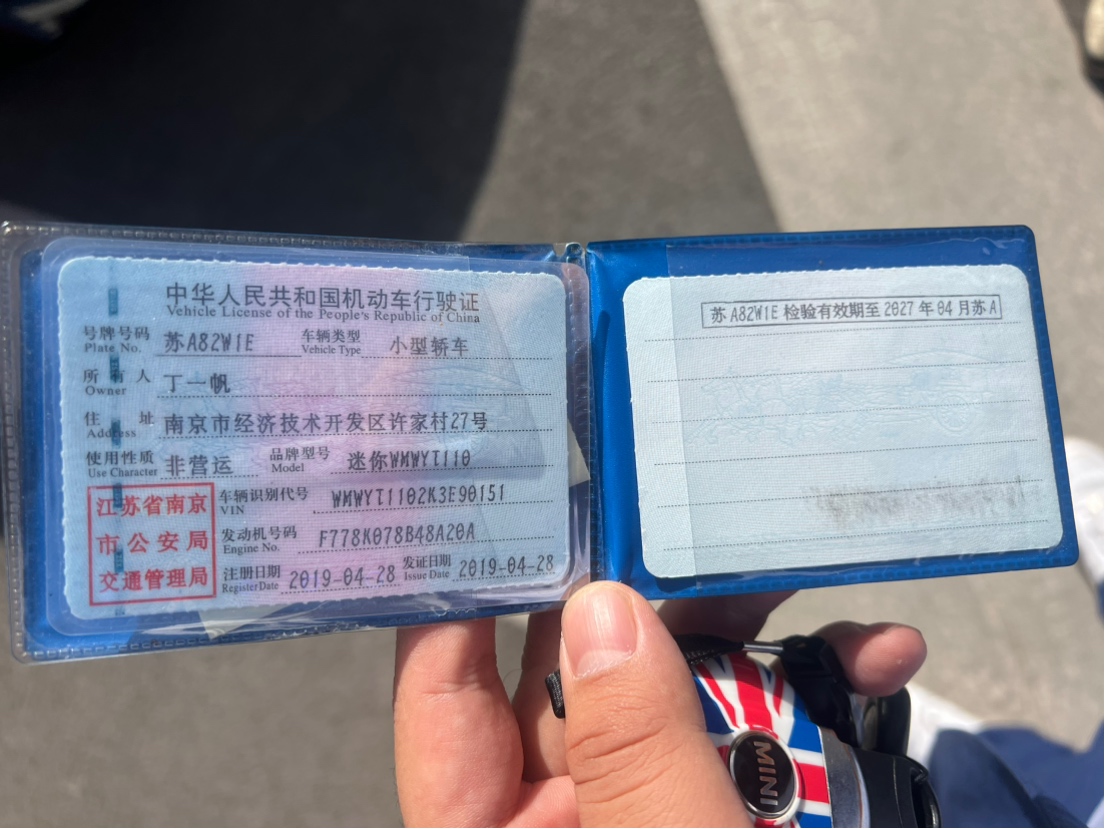 中华人民共和国机动车行驶证
Vehicle License of the People's Republic of China
号牌号码 苏A82W1E 车辆类型 小型轿车
Plate No. Vehicle Type
所有人 丁一帆
Owner
住址 南京市经济技术开发区许家村27号
Address
使用性质 非营运 品牌型号 迷你WMWYT110
Use Character Model
江苏省南京
市公安局
交通管理局
车辆识别代号 WMWYT1102K3E90151
VIN
发动机号码 F778K078B48A20A
Engine No.
注册日期 2019-04-28 发证日期 2019-04-28
Register Date Issue Date
苏A82W1E 检验有效期至 2027 年 04 月苏A
MINI